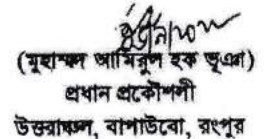 (মুহাম্মদ আমিরুল হক ভূঞা)
প্রধান প্রকৌশলী
উত্তরাঞ্চল, বাপাউবো, রংপুর